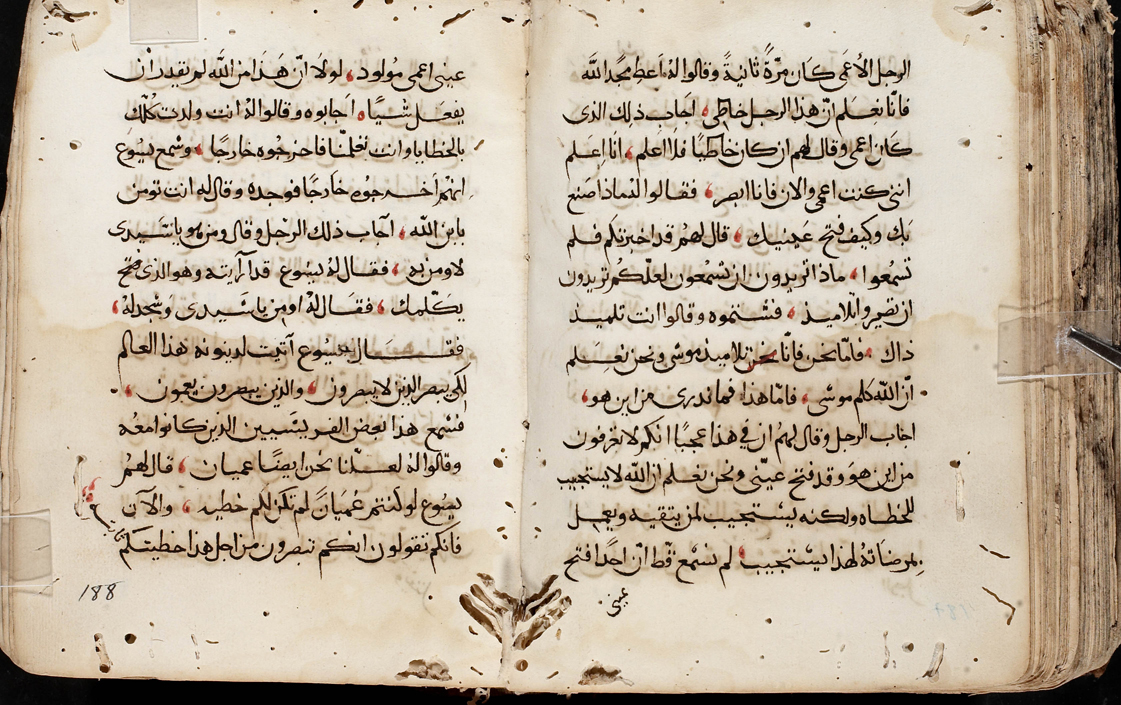 الرجل الأعمى كان مرّةً ثانيةً وقالوا لهُ اعطِ مجدًا لله
فانّا نعلم ان هذا الرجل خاطى، اجاب ذلك الذى
كان اعمى وقال لهم ان كان خاطيًا فلا اعلم، انا اعلم
اننى كنت اعمى والان فانا ابصر، فقالوا لهُ ماذا صنع
بك وكيف فتح عينيك، قال لهُم قد اخبرتكم فلم
تسمعوا، ماذا تريدون ان تسمعون لعلّكم تريدون
ان تصيروا تلاميذه، فشتموه وقالوا انت تلميذ
ذاك، فامّا نحن فانّا نحن تلاميذ موسى ونحن نعلم
انّ الله كلم موسى، فامّا هذا فما ندرى من اين هو،
اجاب الرجل وقال لهُم ان في هذا عجبًا انكم لا تعرفون
من اين هو وقد فتح عينّى ونحن نعلم ان الله لا يستجيب
للخطاه ولكنه يستجيب لمن يتقيه ويعمل
بمرضاته لهذا يستجيب، لم نسمع قط انّ احدًا فتح
عينى
عينى اعمى مولود، لولا انّ هذا من الله لم يقدر ان
يفعل شيًا، اجابوه وقالوا لهُ انت ولدت كلّك
بالخطايا وانت تعلّمنا فاخرجوه خارجًا، وسمع يسوع
انهم اخرجوه خارجًا فوجده وقال له انت تومن
بابن الله، اجاب ذلك الرجل وقال ومن هو يا سيدى
لاومن به، فقال لهُ يسوع قد رايته وهو الذى
يكلمك، فقال لهُ اومن يا سيدى وسجد لهُ،
فقال يسوع اتيت لدينونة هذا العالم
لكى يبصر الذين لا يبصرون، والذين يبصرون يعمون،
فسمع هذا بعض الفريسيين الذين كانوا معهُ
وقالوا لهُ لعلّنا نحن ايضًا عميان، قال لهُم
يسوع لو كنتم عُميانًا لم تكن لكم خطيه، والآن
فانكم تقولون انكم تبصرون من اجل هذا خطيتكم
188